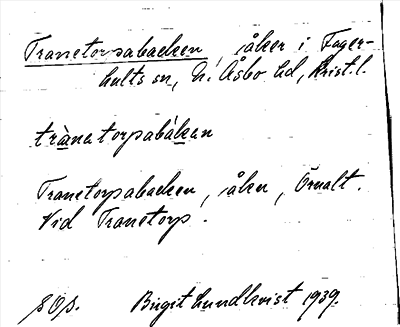 Tranetorpsabacken, åker i Fager-
hults sn, N. Åsbo hd, Krist. l.
trànetorpsabákan
Tranetorpsabacken, åker, Örnalt.
Vid Tranetorp.
Birgit Lundkvist 1939.